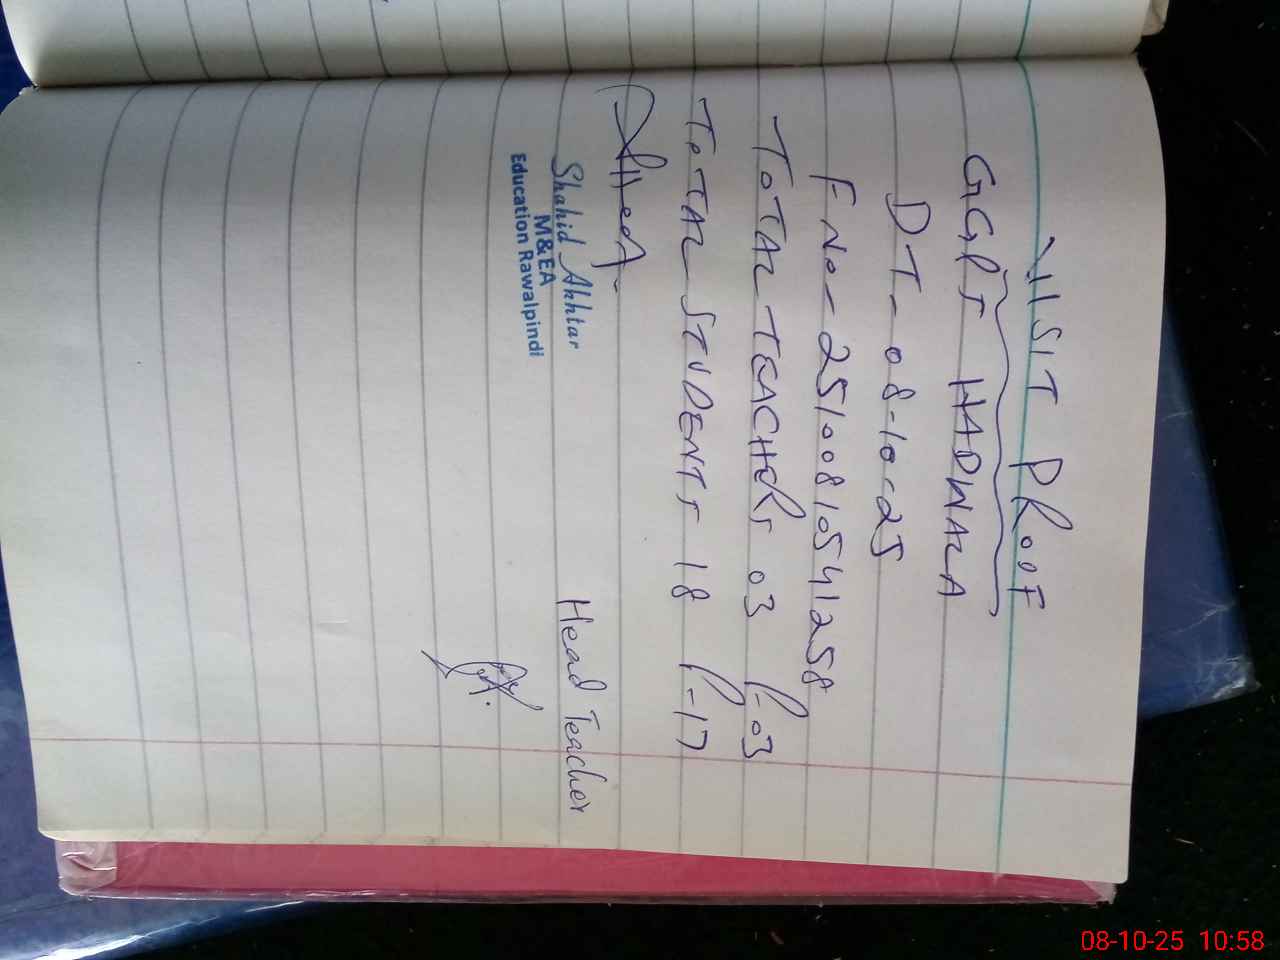 VISIT PROOF
GGPS HADWALA
DT - 08-10-25
F No - 25100810541258
TOTAL TEACHERS 03 P-03
TOTAL STUDENTS 18 P-17
Shahid Akhtar
M&EA
Education Rawalpindi
Head Teacher
08-10-25 10:58